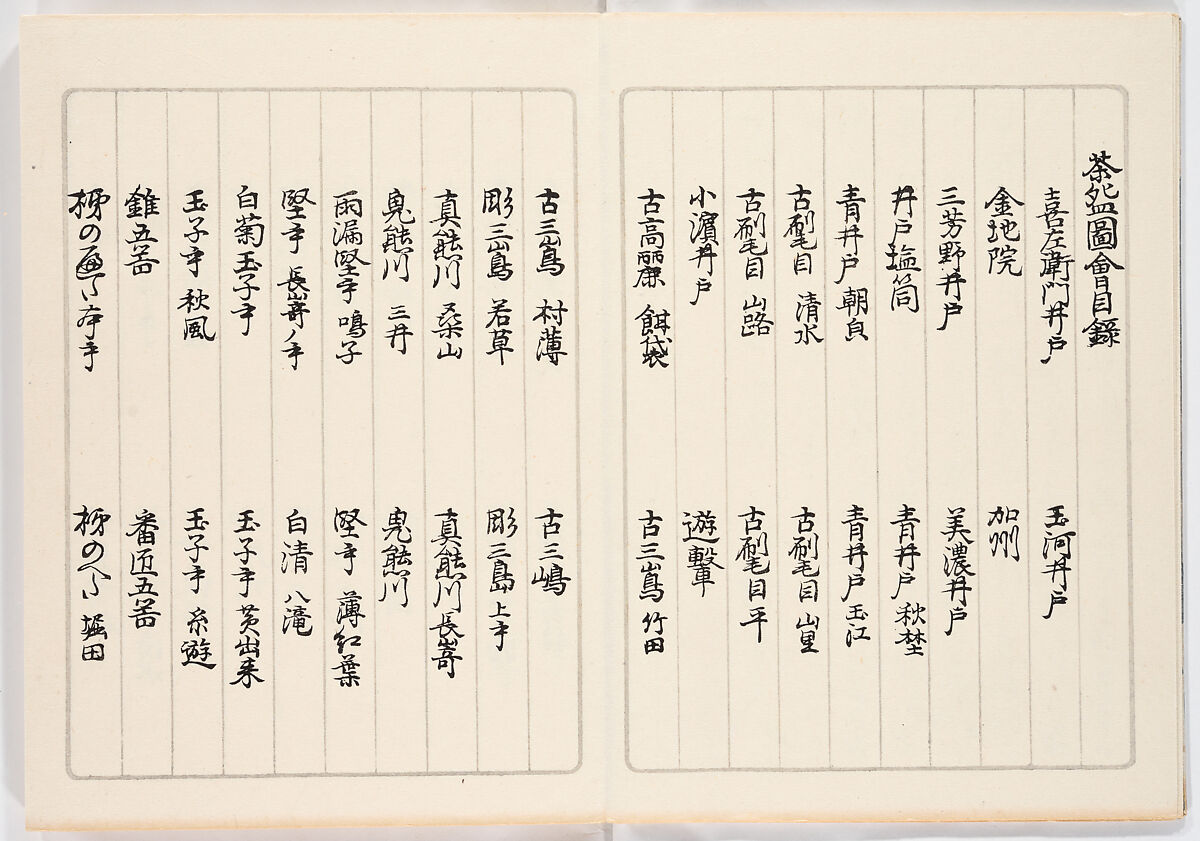 茶盌圖會目録
喜左衛門井戸 玉河井戸
金地院 加州
三芳野井戸 美濃井戸
井戸塩笥 青井戸 秋埜
青井戸 朝皃 青井戸 玉江
古刷毛目 清水 古刷毛目 山里
古刷毛目 山路 古刷毛目 平
小濱井戸 遊撃
古高麗 餌袋 古三嶌 竹田
古三嶌 村薄 古三嶋
彫三嶌 若草 彫三島 上手
真熊川 桑山 真熊川 長嵜
鬼熊川 三井 鬼熊川
雨漏堅手 鳴子 堅手 薄紅葉
堅手 長嵜ノ手 白清 八滝
白菊玉子手 玉子手 黄出来
玉子手 秋風 玉子手 糸遊
錐五器 番匠五器
柹のへた 堀田